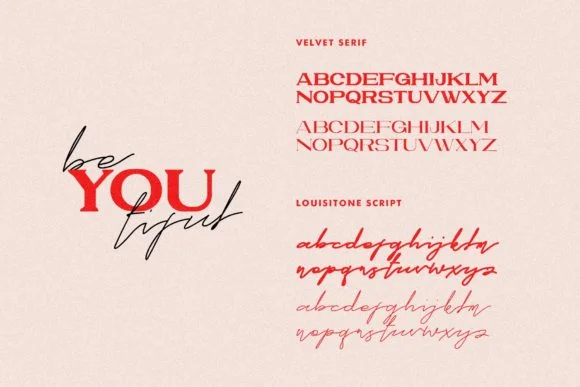 be
YOU
tiful
VELVET SERIF
ABCDEFGHIJKLM
NOPQRSTUVWXYZ
ABCDEFGHIJKLM
NOPQRSTUVWXYZ
LOUISITONE SCRIPT
abcdefghijklm
nopqrstuvwxyz
abcdefghijklm
nopqrstuvwxyz